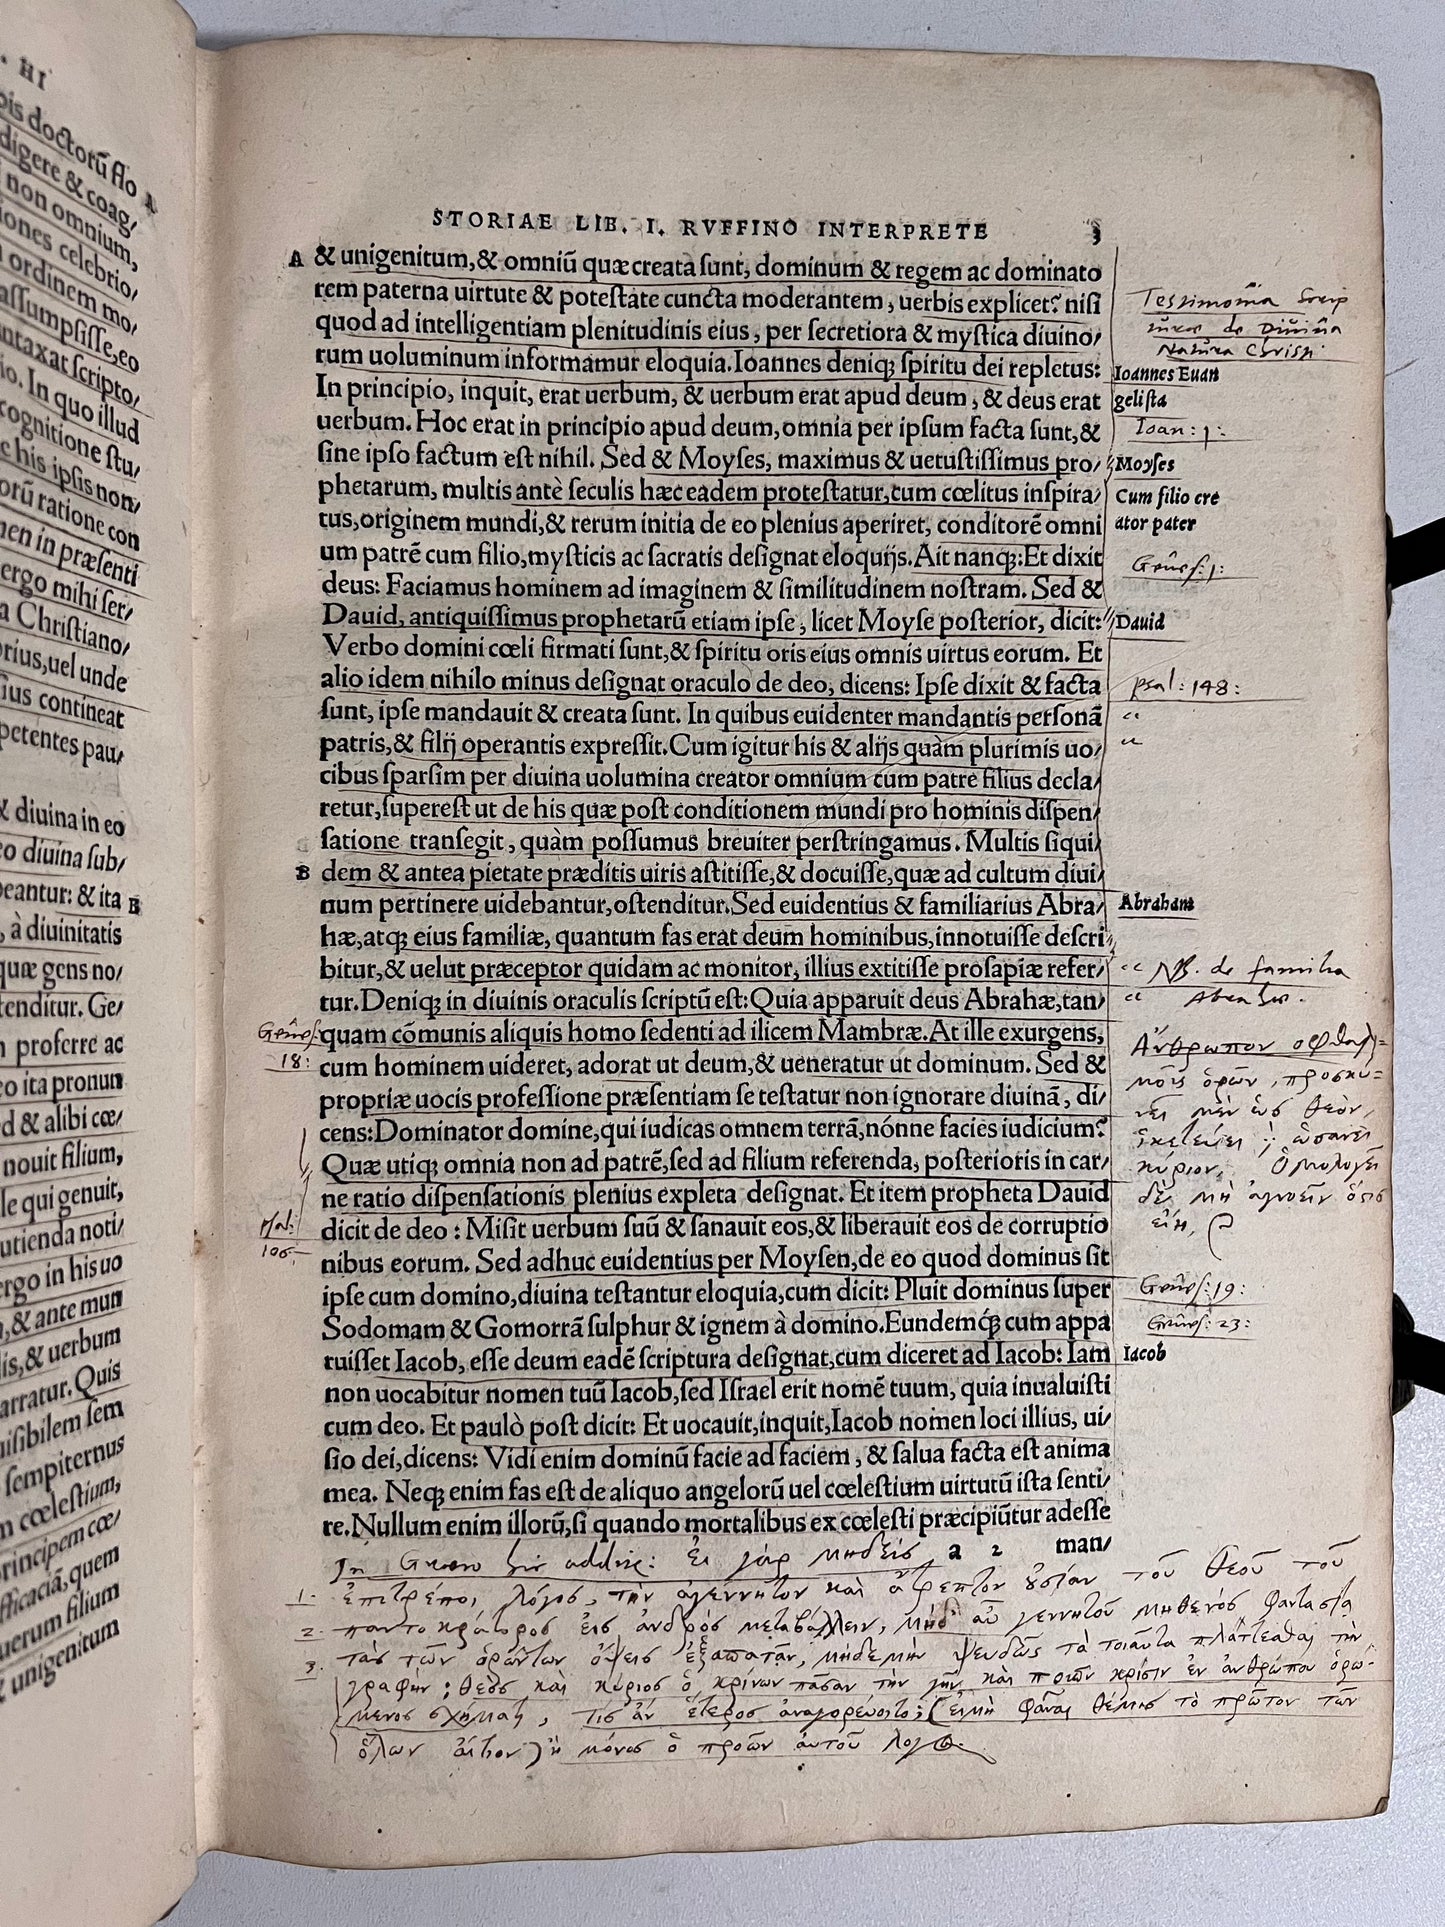 . HI
pis doctorū flo
digere & coag/
non omnium,
iones celebrio/
ordinem mo/
assumpsisse,eo
ntaxat scripto/
io. In quo illud
cognitione stu/
c his ipsis non/
orū ratione con
men in præsenti
ergo mihi ser/
a Christiano/
rius,uel unde
sius contineat
petentes pau/
& diuina in eo
eo diuina sub/
beantur: & ita B
, à diuinitatis
quæ gens no/
tenditur. Ge/
n proferre ac
eo ita pronun
d & alibi cœ/
nouit filium,
le qui genuit,
utienda noti/
ergo in his uo
,& ante mun
lis,& uerbum
arratur. Quis
uisibilem sem
sempiternus
m cœlestium,
principem cœ/
fficaciā,quem
uerum filium
& unigenitum
STORIAE LIB. I. RVFFINO INTERPRETE 3
A & unigenitum,& omniū quæ creata sunt, dominum & regem ac dominato
rem paterna uirtute & potestate cuncta moderantem, uerbis explicet? nisi
quod ad intelligentiam plenitudinis eius, per secretiora & mystica diuino/
rum uoluminum informamur eloquia. Ioannes deniq; spiritu dei repletus:
In principio, inquit, erat uerbum, & uerbum erat apud deum, & deus erat
uerbum. Hoc erat in principio apud deum,omnia per ipsum facta sunt,&
sine ipso factum est nihil. Sed & Moyses, maximus & uetustissimus pro/
phetarum, multis antè seculis hæc eadem protestatur,cum cœlitus inspira/
tus,originem mundi,& rerum initia de eo plenius aperiret, conditorē omni
um patrē cum filio,mysticis ac sacratis designat eloquijs. Ait nanq;:Et dixit
deus: Faciamus hominem ad imaginem & similitudinem nostram. Sed &
Dauid, antiquissimus prophetarū etiam ipse, licet Moyse posterior, dicit:
Verbo domini cœli firmati sunt,& spiritu oris eius omnis uirtus eorum. Et
alio idem nihilo minus designat oraculo de deo, dicens: Ipse dixit & facta
sunt, ipse mandauit & creata sunt. In quibus euidenter mandantis personā
patris,& filij operantis expressit. Cum igitur his & alijs quàm plurimis uo/
cibus sparsim per diuina uolumina creator omnium cum patre filius decla/
retur,superest ut de his quæ post conditionem mundi pro hominis dispen/
satione transegit, quàm possumus breuiter perstringamus. Multis siqui/
B dem & antea pietate præditis uiris astitisse,& docuisse,quæ ad cultum diui/
num pertinere uidebantur,ostenditur. Sed euidentius & familiarius Abra/
hæ,atq; eius familiæ, quantum fas erat deum hominibus,innotuisse descri
bitur,& uelut præceptor quidam ac monitor, illius extitisse prosapiæ refer/
tur. Deniq; in diuinis oraculis scriptū est: Quia apparuit deus Abrahæ,tan/
quam cōmunis aliquis homo sedenti ad ilicem Mambræ. At ille exurgens,
cum hominem uideret, adorat ut deum,& ueneratur ut dominum. Sed &
propriæ uocis professione præsentiam se testatur non ignorare diuinā, di/
cens: Dominator domine,qui iudicas omnem terrā,nónne facies iudicium?
Quæ utiq; omnia non ad patrē,sed ad filium referenda, posterioris in car/
ne ratio dispensationis plenius expleta designat. Et item propheta Dauid
dicit de deo: Misit uerbum suū & sanauit eos,& liberauit eos de corruptio
nibus eorum. Sed adhuc euidentius per Moysen,de eo quod dominus sit
ipse cum domino,diuina testantur eloquia,cum dicit: Pluit dominus super
Sodomam & Gomorrā sulphur & ignem à domino. Eundemq́; cum appa
ruisset Iacob, esse deum eadē scriptura designat,cum diceret ad Iacob: Iam
non uocabitur nomen tuū Iacob,sed Israel erit nomē tuum, quia inualuisti
cum deo. Et paulò post dicit: Et uocauit,inquit,Iacob nomen loci illius, ui/
sio dei,dicens: Vidi enim dominū facie ad faciem, & salua facta est anima
mea. Neq; enim fas est de aliquo angelorū uel cœlestium uirtutū ista senti/
re. Nullum enim illorū,si quando mortalibus ex cœlesti præcipiūtur adesse
a 2 man/
Testimonia Scrip
turæ de Diuina
Natura Christi
Ioannes Euan
gelista
Ioan: 1:
Moyses
Cum filio cre
ator pater
Genes: 1:
Dauid
psal: 148:
Abraham
NB. de familia
Abrahæ.
Genes:
18:
Ἄνθρωπον ὀφθαλ=
μοῖς ὁρῶν, προσκυ=
νεῖ μὲν ὡς θεὸν,
ἱκετεύει δὲ ὡσανεὶ
κύριον, Ὁμολογεῖ
δὲ μὴ ἀγνοεῖν ὅστις
εἴη,
Psal:
106
Genes: 19:
Genes: 23:
Iacob
In Græco hic additur: εἰ γὰρ μηδεὶς
1. ἐπιτρέποι λόγος, τὴν ἀγέννητον καὶ ἄτρεπτον οὐσίαν τοῦ θεοῦ τοῦ
2. παντοκράτορος εἰς ἀνδρὸς μεταβάλλειν, μηδ' αὖ γεννητοῦ μηθενὸς φαντασίᾳ
3. τὰς τῶν ὁρώντων ὄψεις ἐξαπατᾷν, μηδὲ μὴν ψευδῶς τὰ τοιαῦτα πλάττεσθαι τὴν
γραφὴν; θεὸς καὶ κύριος ὁ κρίνων πᾶσαν τὴν γῆν καὶ ποιῶν κρίσιν ἐν ἀνθρώπου ὁρώ-
μενος σχήματι, τίς ἂν ἕτερος ἀναγορεύοιτο; (εἰ μὴ φάναι θέμις τὸ πρῶτον τῶν
ὅλων αἴτιον) ἢ μόνος ὁ προὼν αὐτοῦ λόγος.